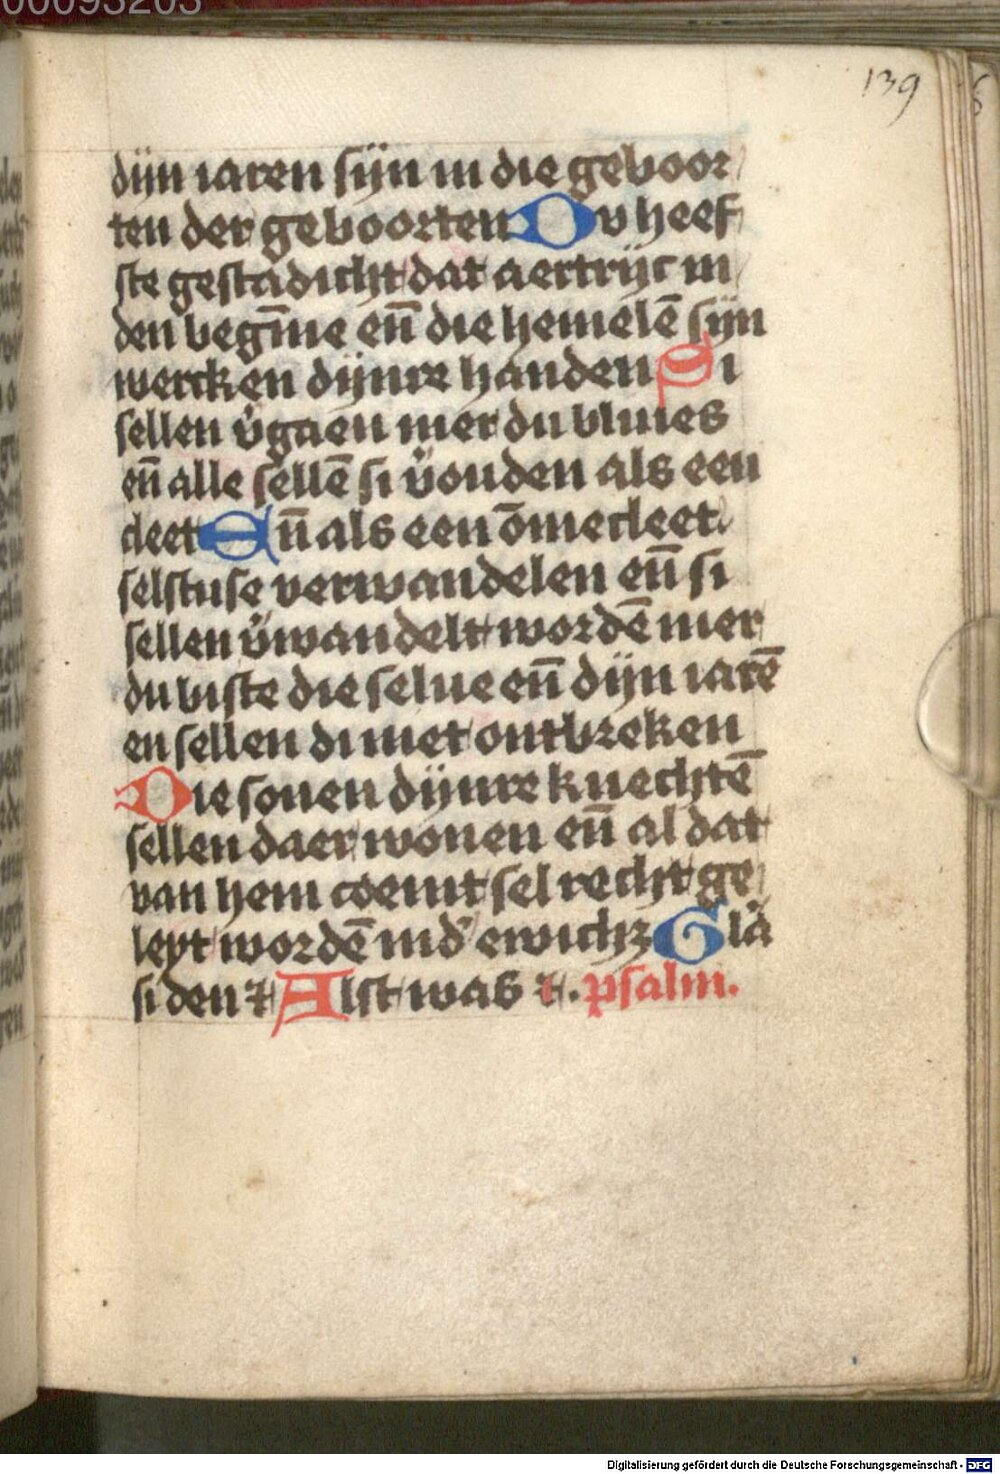 00093203
139
dijn iaren sijn in die geboor
ten der geboorten Du heef
ste gestadicht dat aertrijc in
den begīne en̄ die hemelē sijn
wercken dijnre handen Si
sellen v̛gaen mer du bliues
en̄ alle sellē si v̛ouden als een
cleet En̄ als een ōmecleet
selstuse verwandelen en̄ si
sellen v̛wandelt wordē mer
du biste die selue en̄ dijn iarē
en sellen di niet ontbreken
Die sonen dijnre knechtē
sellen daer wonen en̄ al dat
van hem coemt sel recht ge
leyt wordē in d̛ ewichꝫ Glā
si den ⁊ Alst was ⁊. psalm.
Digitalisierung gefördert durch die Deutsche Forschungsgemeinschaft - DFG